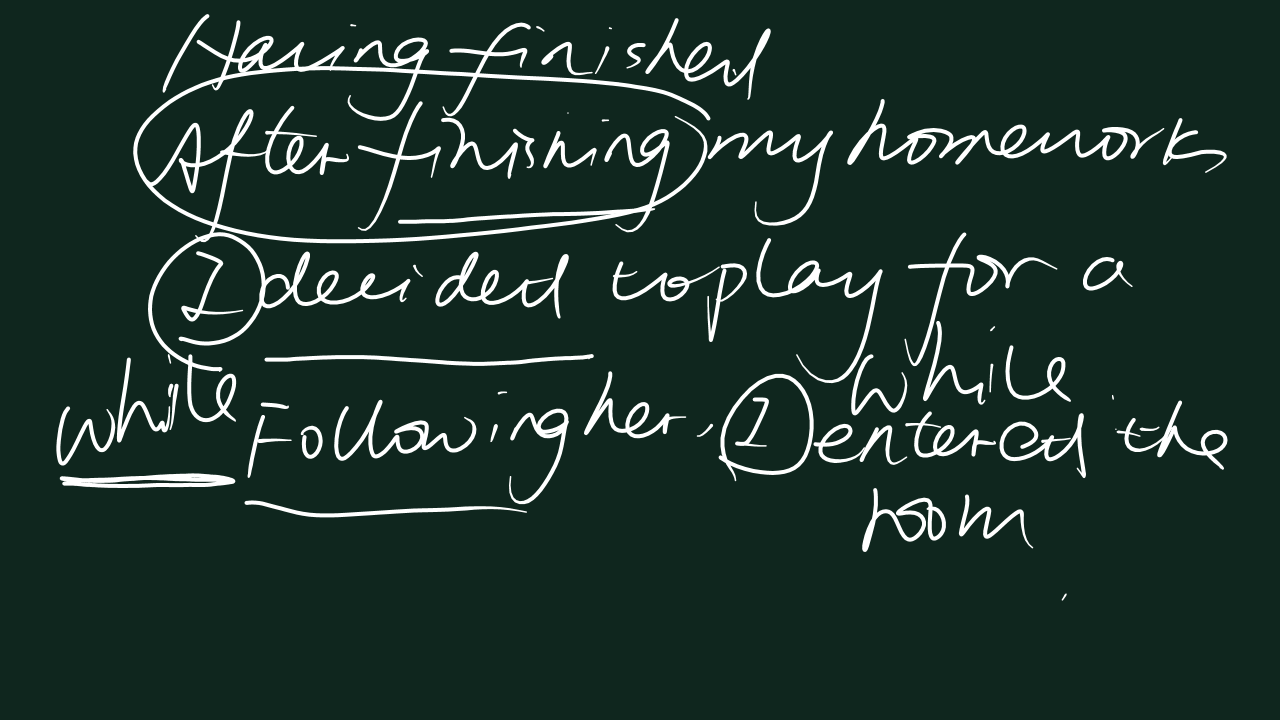 Having finished
After finishing my homework
I decided to play for a
while
while Following her, I entered the
room